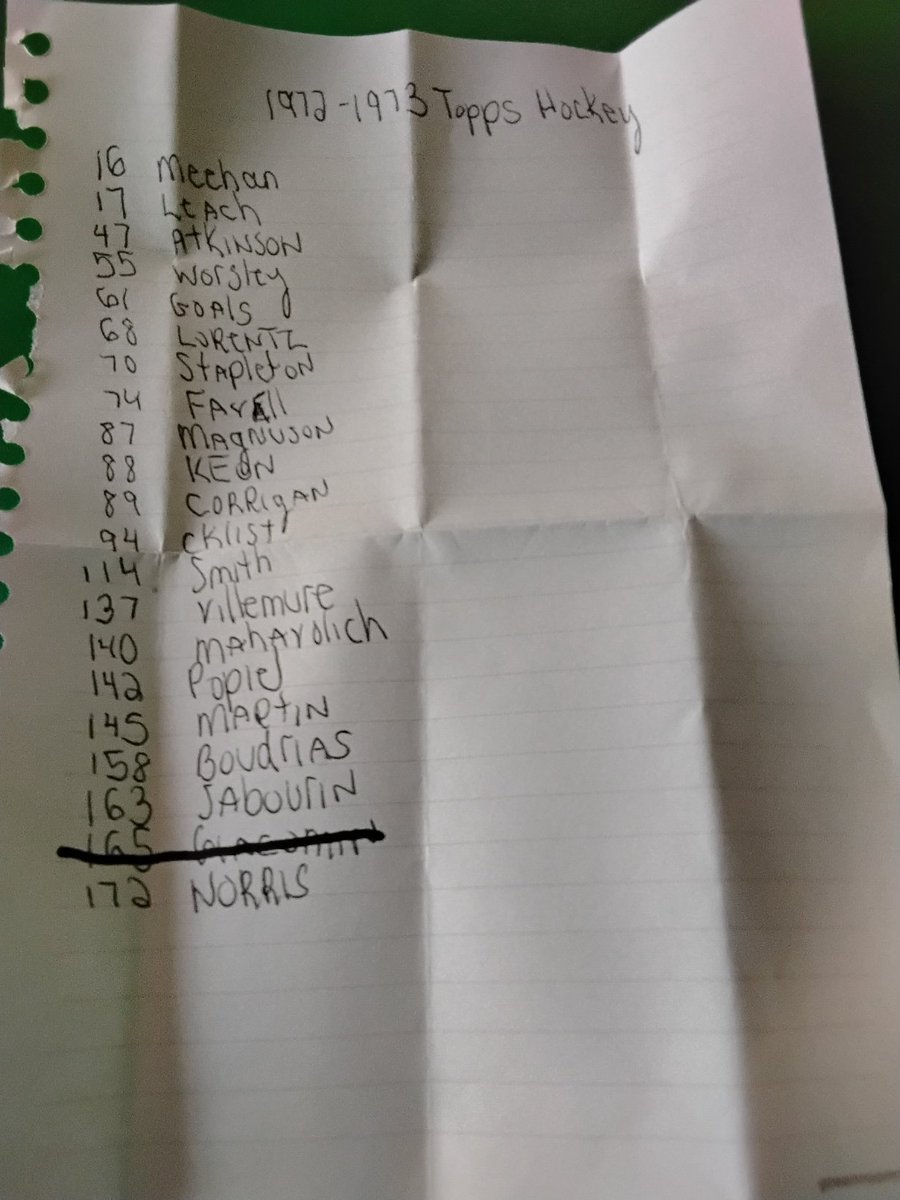 1972-1973 Topps Hockey
16 Meehan
17 LEACh
47 AtKINSON
55 Worsley
61 GOALS
68 LORENTZ
70 StAPletON
74 FArEll
87 MAgNUSON
88 KEON
89 CORRigAN
94 CKLIST
114 Smith
137 Villemure
140 MAHAvolich
142 Popiel
145 MARtIN
158 BoudriAS
163 JAbouriN
165 GIACOMIN
172 NORRIS